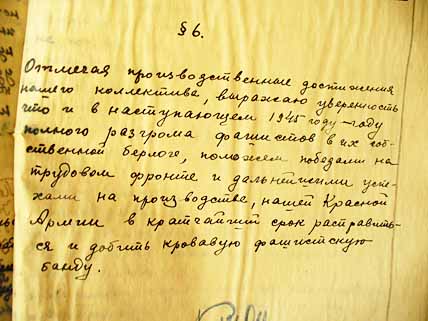 § 6.
Отмечая производственные достижения
нашего коллектива, выражаю уверенность
что и в наступающем 1945 году – году
полного разгрома фашистов в их соб-
ственной берлоге, поможем победами на
трудовом фронте и дальнейшими успе-
хами на производстве, нашей Красной
Армии в кратчайший срок расправить-
ся и добить кровавую фашистскую
банду.